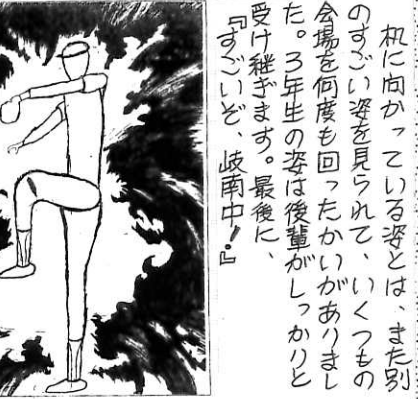 机に向かっている姿とは、また別
のすごい姿を見られて、いくつもの
会場を何度も回ったかいがありまし
た。3年生の姿は後輩がしっかりと
受け継ぎます。最後に、
『すごいぞ、岐南中!』